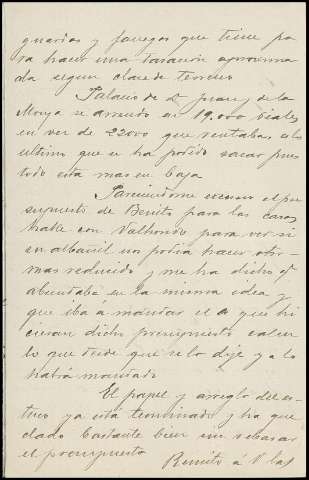 guardas y fanegas que tiene pa
ra hacer una tasación aproxima
da segun clase de terreno
Palacio de Dn Juan y de la
Monja se arrendo en 19.000 reales
en vez de 22000 que rentaba, es lo
ultimo que se ha podido sacar pues
todo esta mas en baja
Pareciendome excesivo el pre
supuesto de Benito para las casas
hable con Valhondo para ver si
su albañil nos podia hacer otro
mas reducido y me ha dicho qe
abundaba en la misma idea y
que iba á mandar el a que hi
cieran dicho presupuesto
lo que desde que se lo dije ya lo
habrá mandado
El papel y arreglo del es
ya está terminado y ha que
dado bastante bien sin rebasar
el presupuesto
Remito á V las